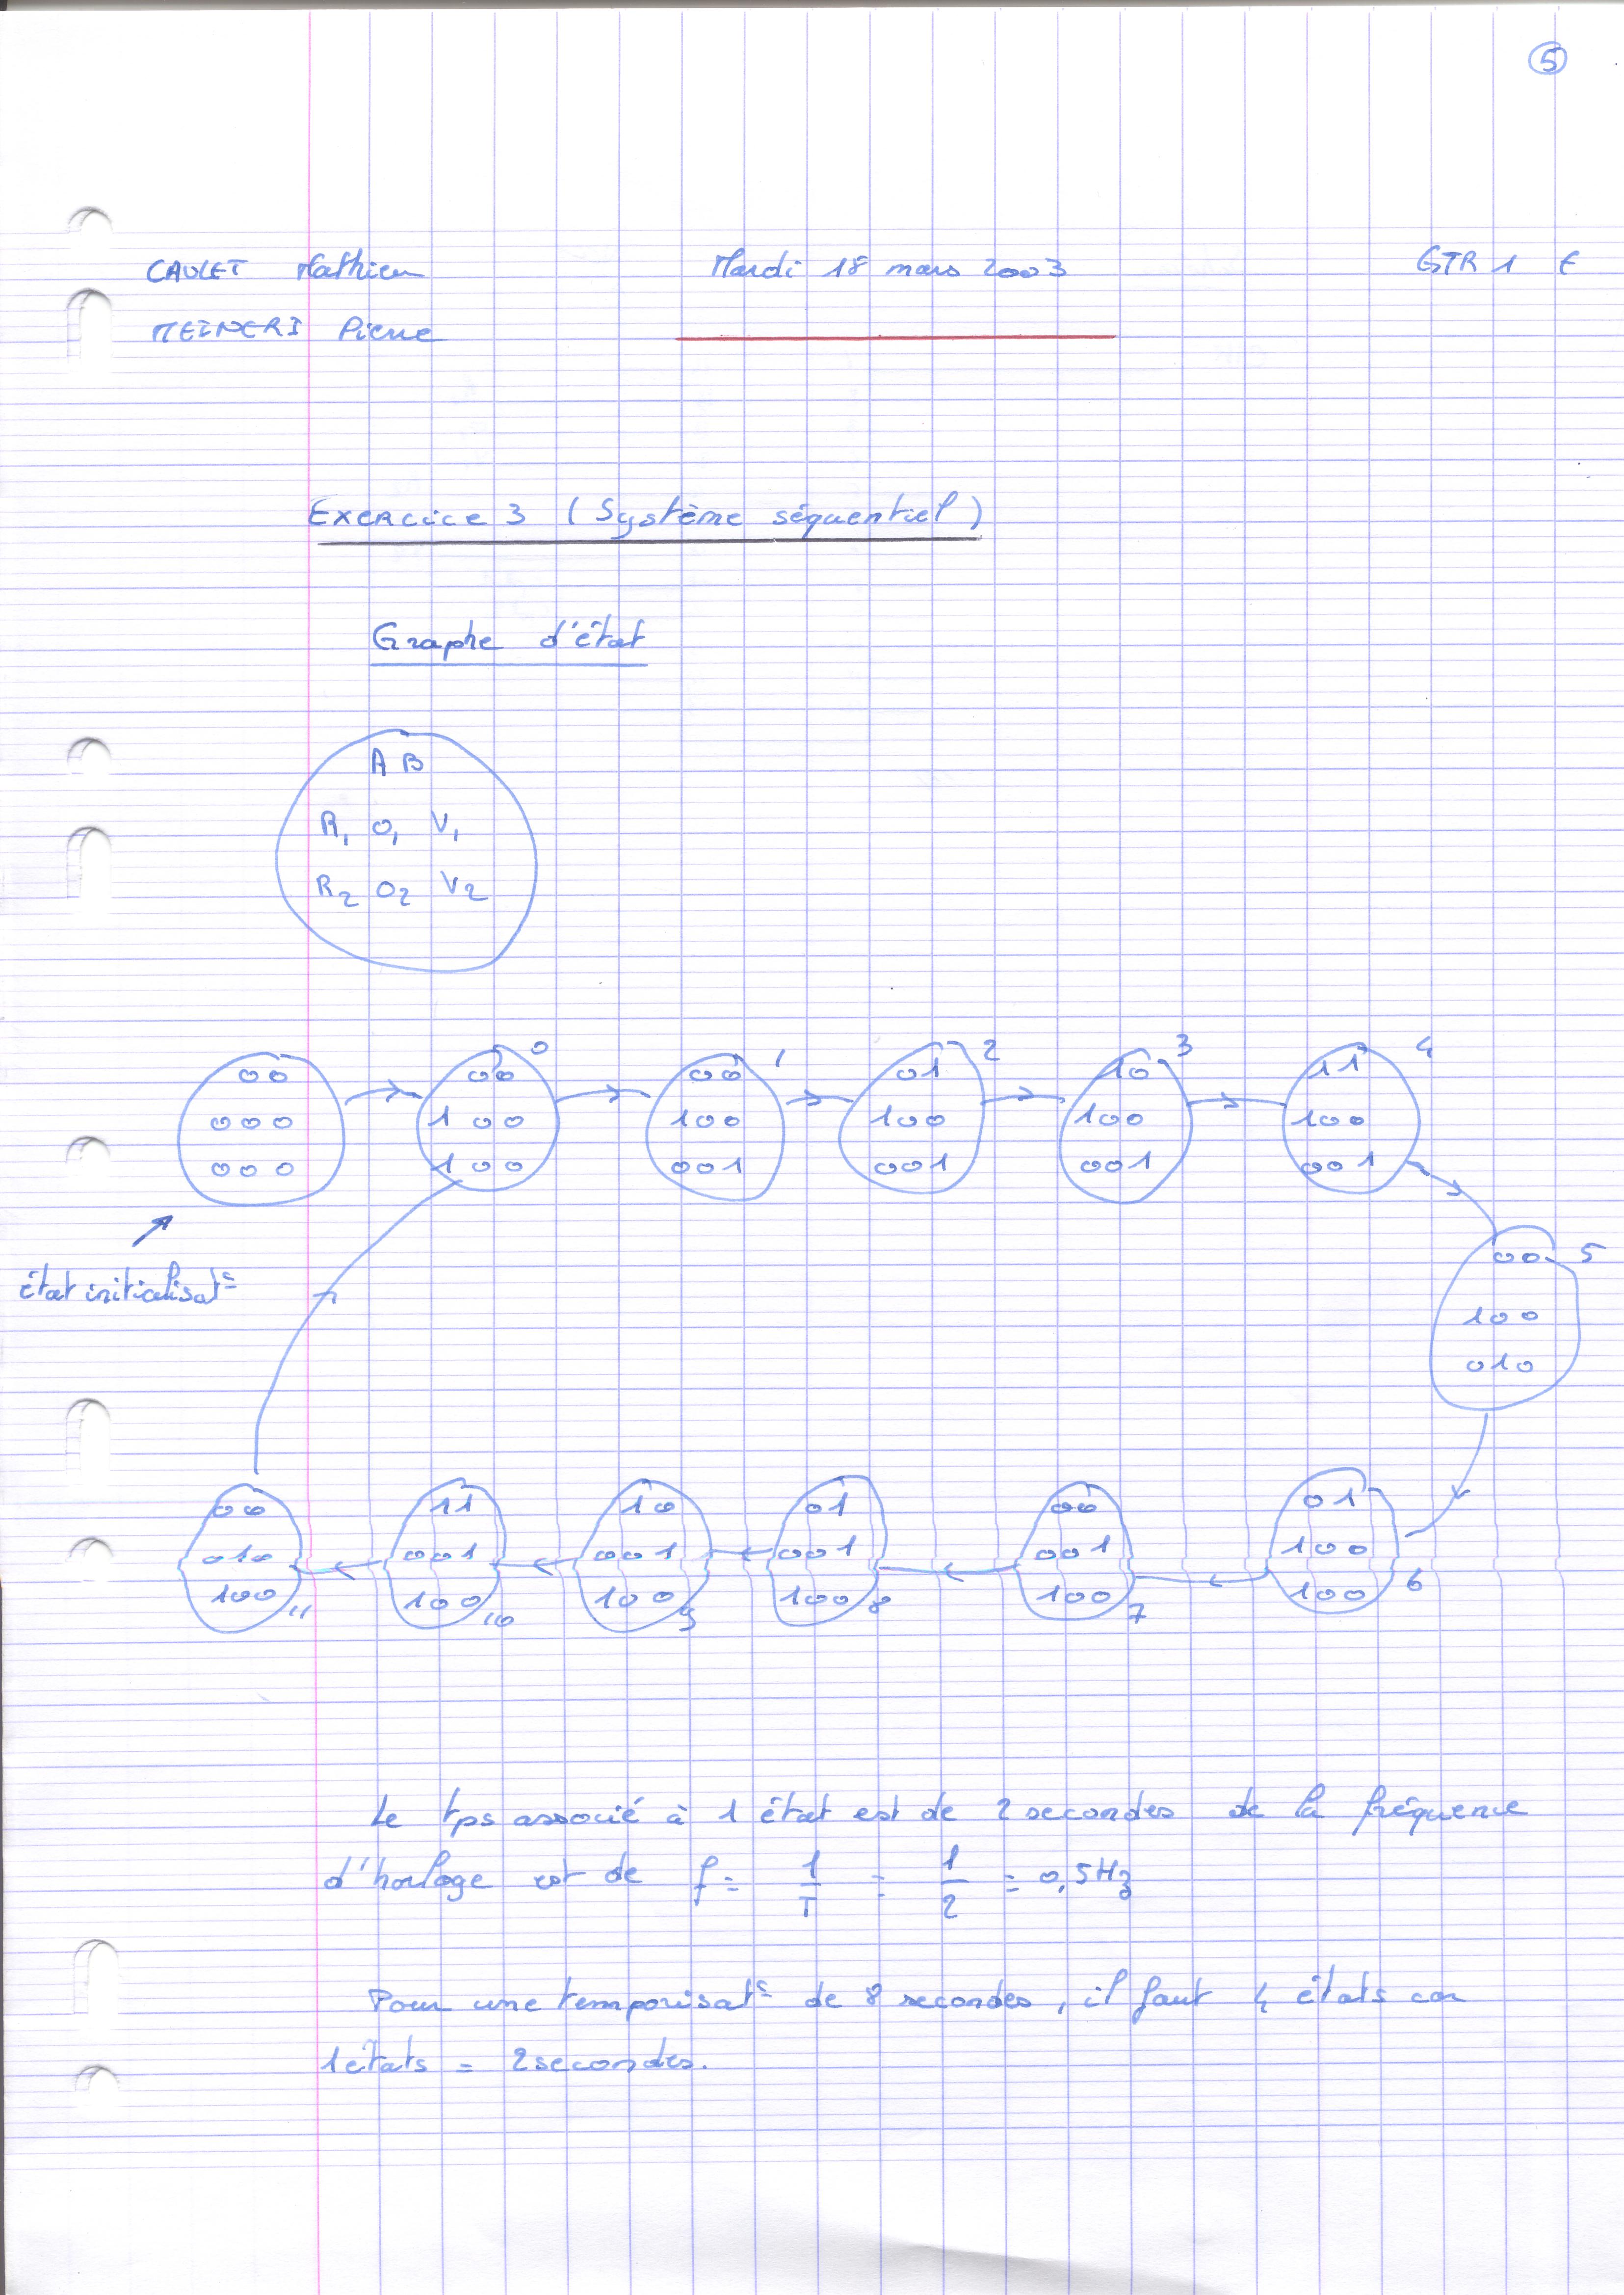 5
CAULET Mathieu Mardi 18 mars 2003 GTR 1 E
MEINERI Pierre
Exercice 3 (Système séquentiel)
Graphe d'état
A B
R1 O1 V1
R2 O2 V2
0 1 2 3 4
00 00 00 01 10 11
000 100 100 100 100 100
000 100 001 001 001 001
état initialisat°
00 5
100
010
00 11 10 01 00 01
010 001 001 001 001 100
100 100 100 100 100 100
11 10 9 8 7 6
Le tps associé à 1 état est de 2 secondes de la fréquence
d'horloge est de f = 1/T = 1/2 = 0,5Hz
Pour une temporisat° de 8 secondes, il faut 4 états car
1états = 2secondes.